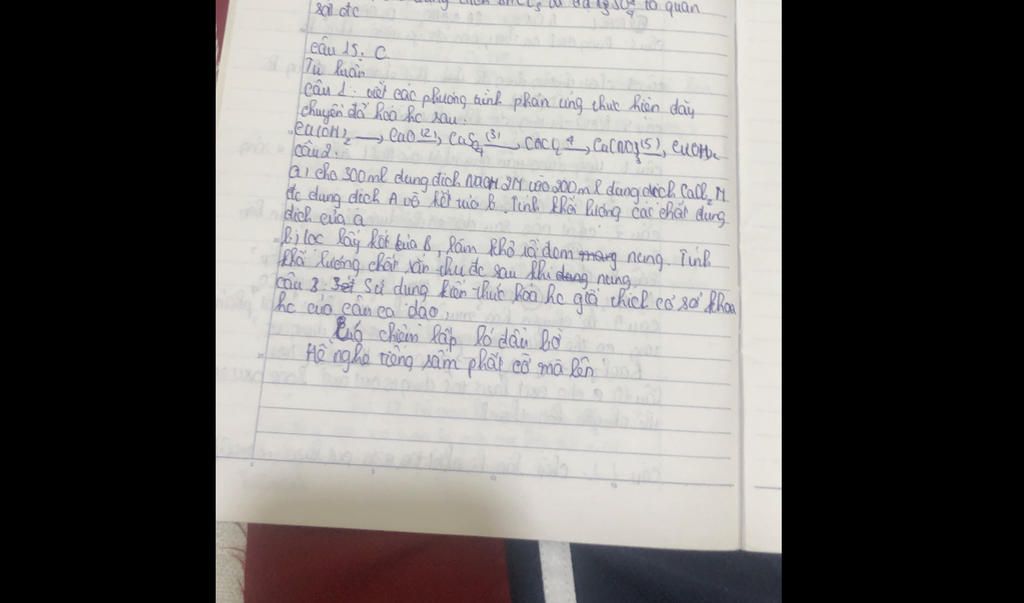 sát đc
câu 15. C
Tự luận
câu 1: viết các phương trình phản ứng thực hiện dãy
chuyển đổi hoá hc sau:
Cu(OH)₂ → CuO (2)→ CuSO₄ (3)→ CuCl₂ 4→ Cu(NO₃ (5)→ Cu(OH)₂
câu 2:
a) cho 300ml dung dịch NaOH 2M vào 200ml dung dịch CuCl₂ M
đc dung dịch A và kết tủa B. Tính khối lượng các chất dung
dịch của a
b) lọc lấy kết tủa B, làm khô rồi đem nung. Tính
khối lượng chất rắn thu đc sau khi nung
câu 3: Sử dụng kiến thức hoá hc giải thích cơ sở khoa
hc của câu ca dao,
Lúa chiêm lấp ló đầu bờ
Hễ nghe tiếng sấm phất cờ mà lên